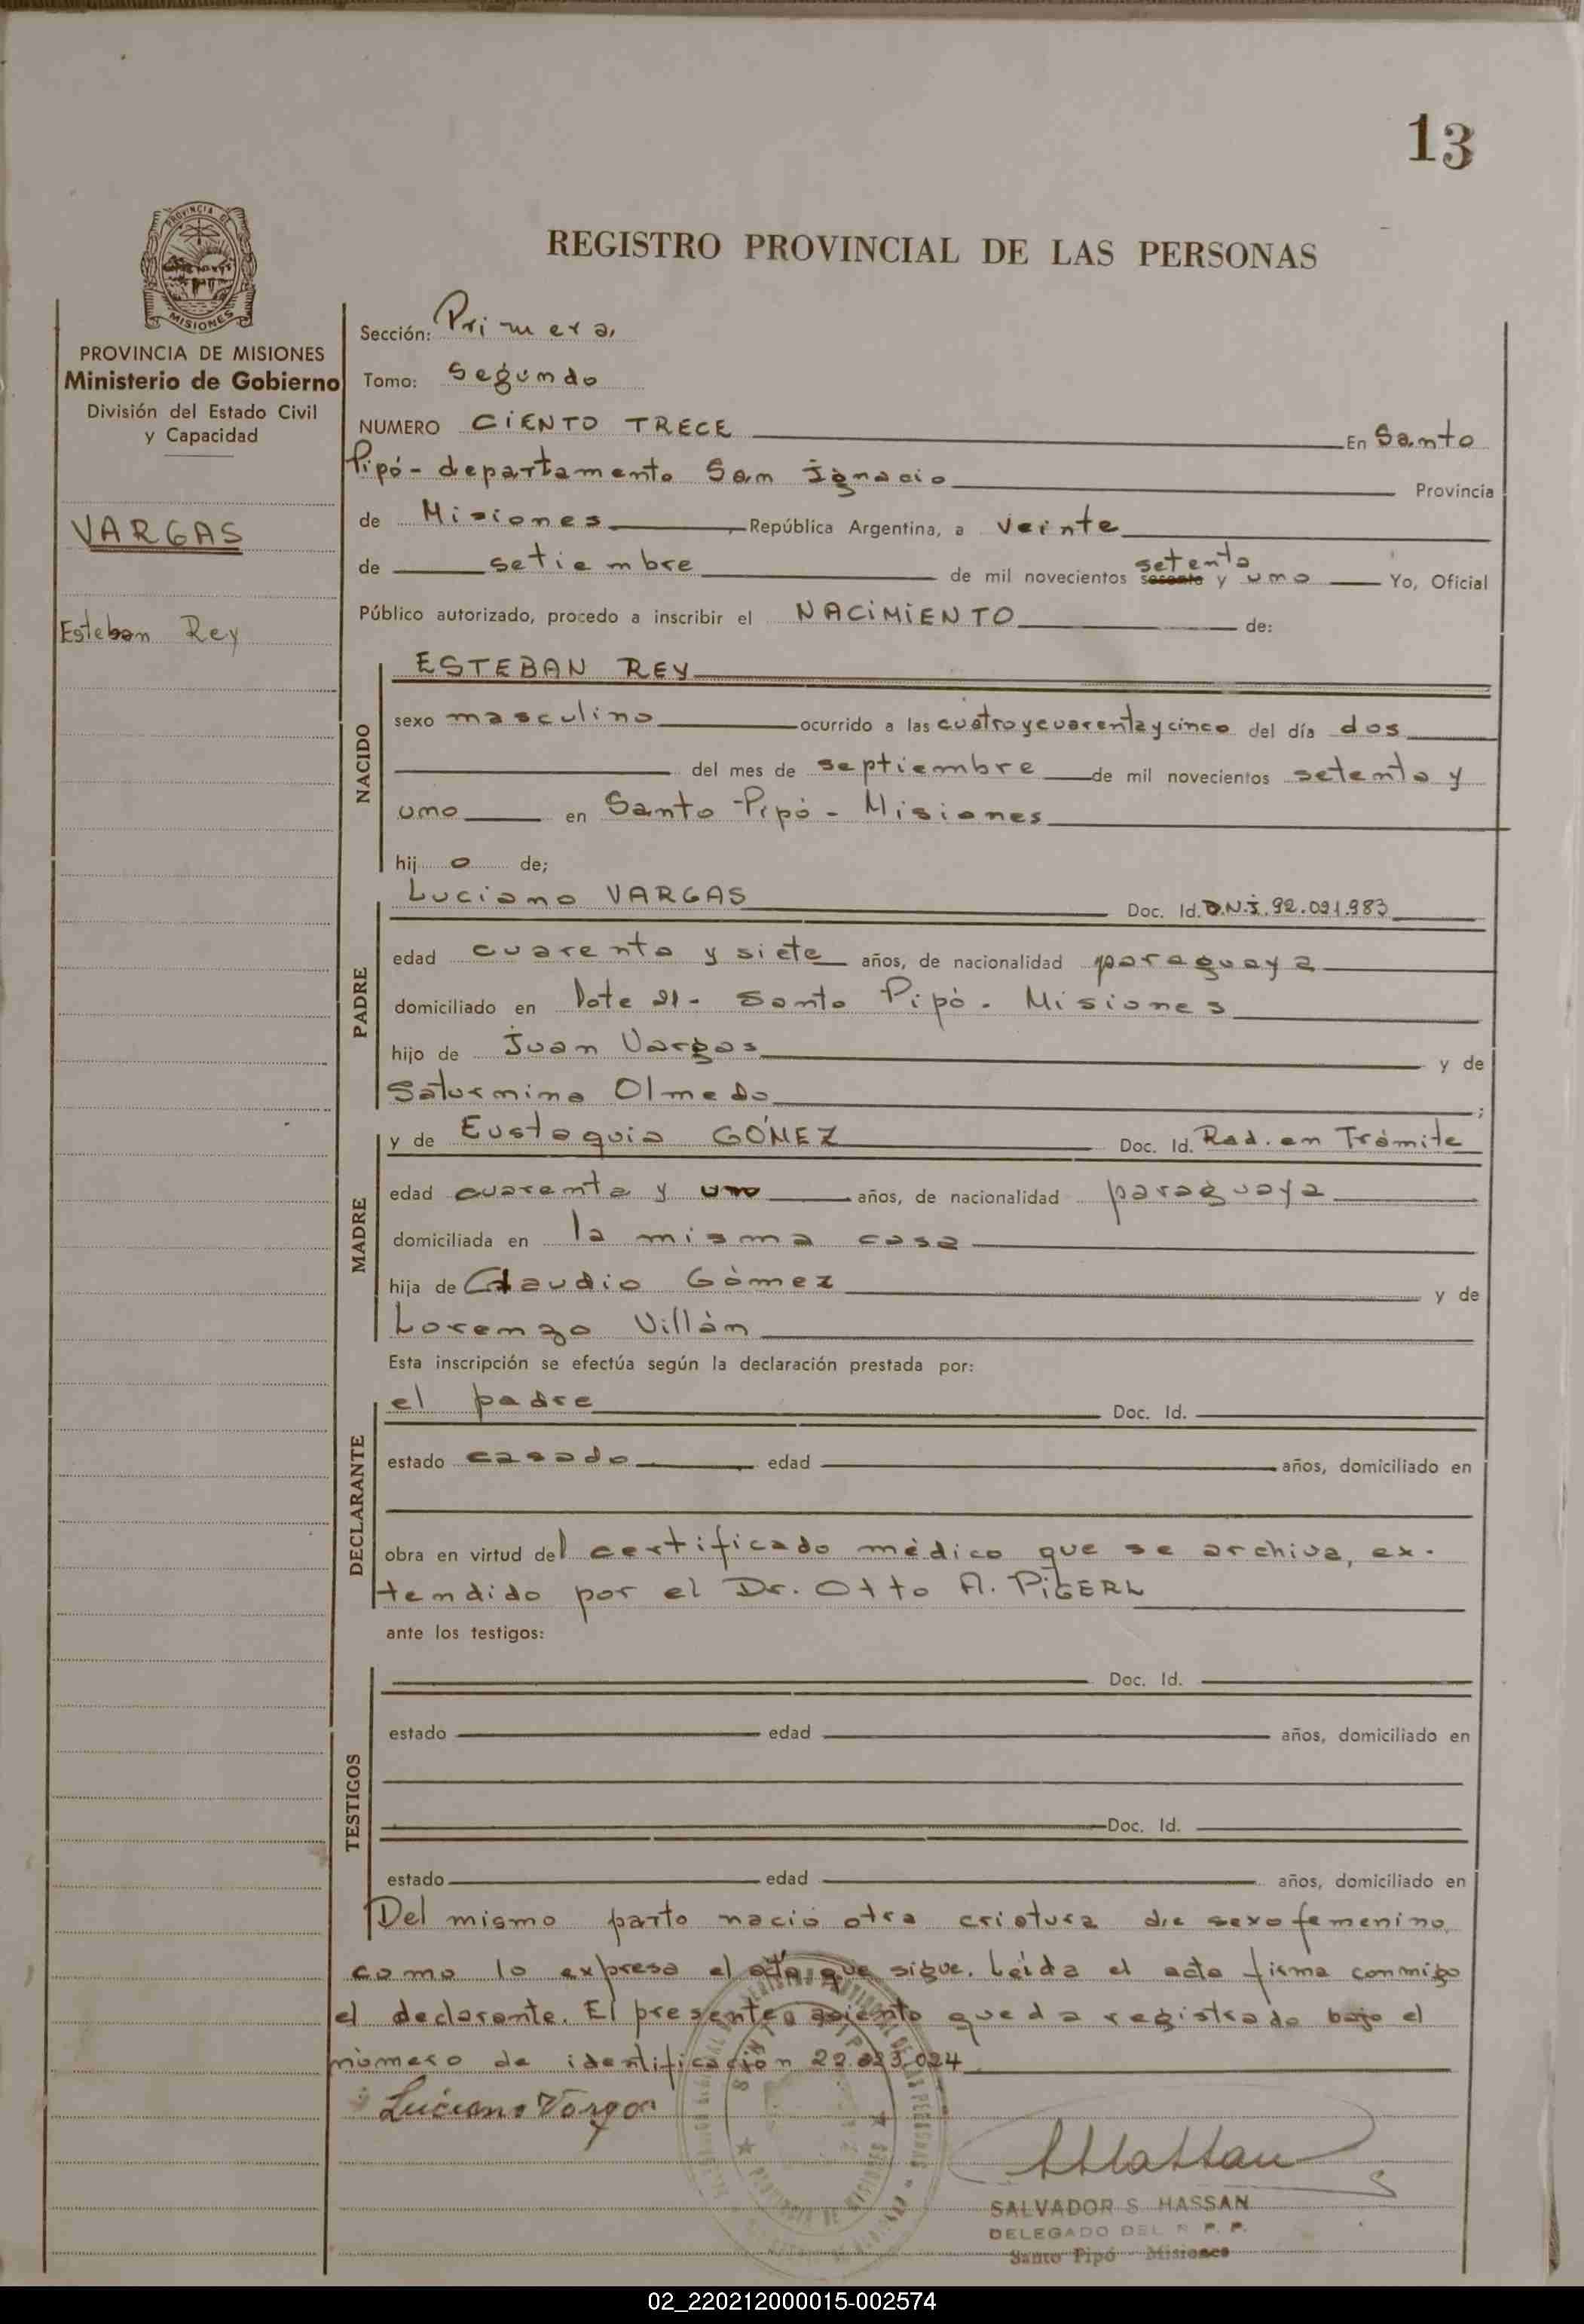 13
PROVINCIA DE
MISIONES
REGISTRO PROVINCIAL DE LAS PERSONAS
PROVINCIA DE MISIONES
Ministerio de Gobierno
División del Estado Civil
y Capacidad
VARGAS
Esteban Rey
Sección: Primera
Tomo: Segundo
NUMERO CIENTO TRECE En Santo
Pipó - departamento San Ignacio Provincia
de Misiones, República Argentina, a veinte
de setiembre de mil novecientos sesenta setenta y uno Yo, Oficial
Público autorizado, procedo a inscribir el NACIMIENTO de:
NACIDO
ESTEBAN REY
sexo masculino ocurrido a las cuatro y cuarenta y cinco del día dos
del mes de septiembre de mil novecientos setenta y
uno en Santo Pipó - Misiones
hij o de;
PADRE
Luciano VARGAS Doc. Id. D.N.I. 92.091.983
edad cuarenta y siete años, de nacionalidad paraguaya
domiciliado en lote 21 - Santo Pipó - Misiones
hijo de Juan Vargas y de
Saturnina Olmedo;
MADRE
y de Eustaquia GÓMEZ Doc. Id. Rad. en Trámite
edad cuarenta y un años, de nacionalidad paraguaya
domiciliada en la misma casa
hija de Claudio Gómez y de
Lorenza Villán
Esta inscripción se efectúa según la declaración prestada por:
DECLARANTE
el padre Doc. Id.
estado casado edad años, domiciliado en
obra en virtud del certificado médico que se archiva, ex-
tendido por el Dr. Otto A. PIGERL
ante los testigos:
TESTIGOS
Doc. Id.
estado edad años, domiciliado en
Doc. Id.
estado edad años, domiciliado en
Del mismo parto nació otra criatura de sexo femenino,
como lo expresa el acta que sigue. Leída el acta firma conmigo
el declarante. El presente asiento queda registrado bajo el
número de identificación 22.023.024
Luciano Vargas
SALVADOR S. HASSAN
DELEGADO DEL R. P. P.
Santo Pipó - Misiones
02_220212000015-002574